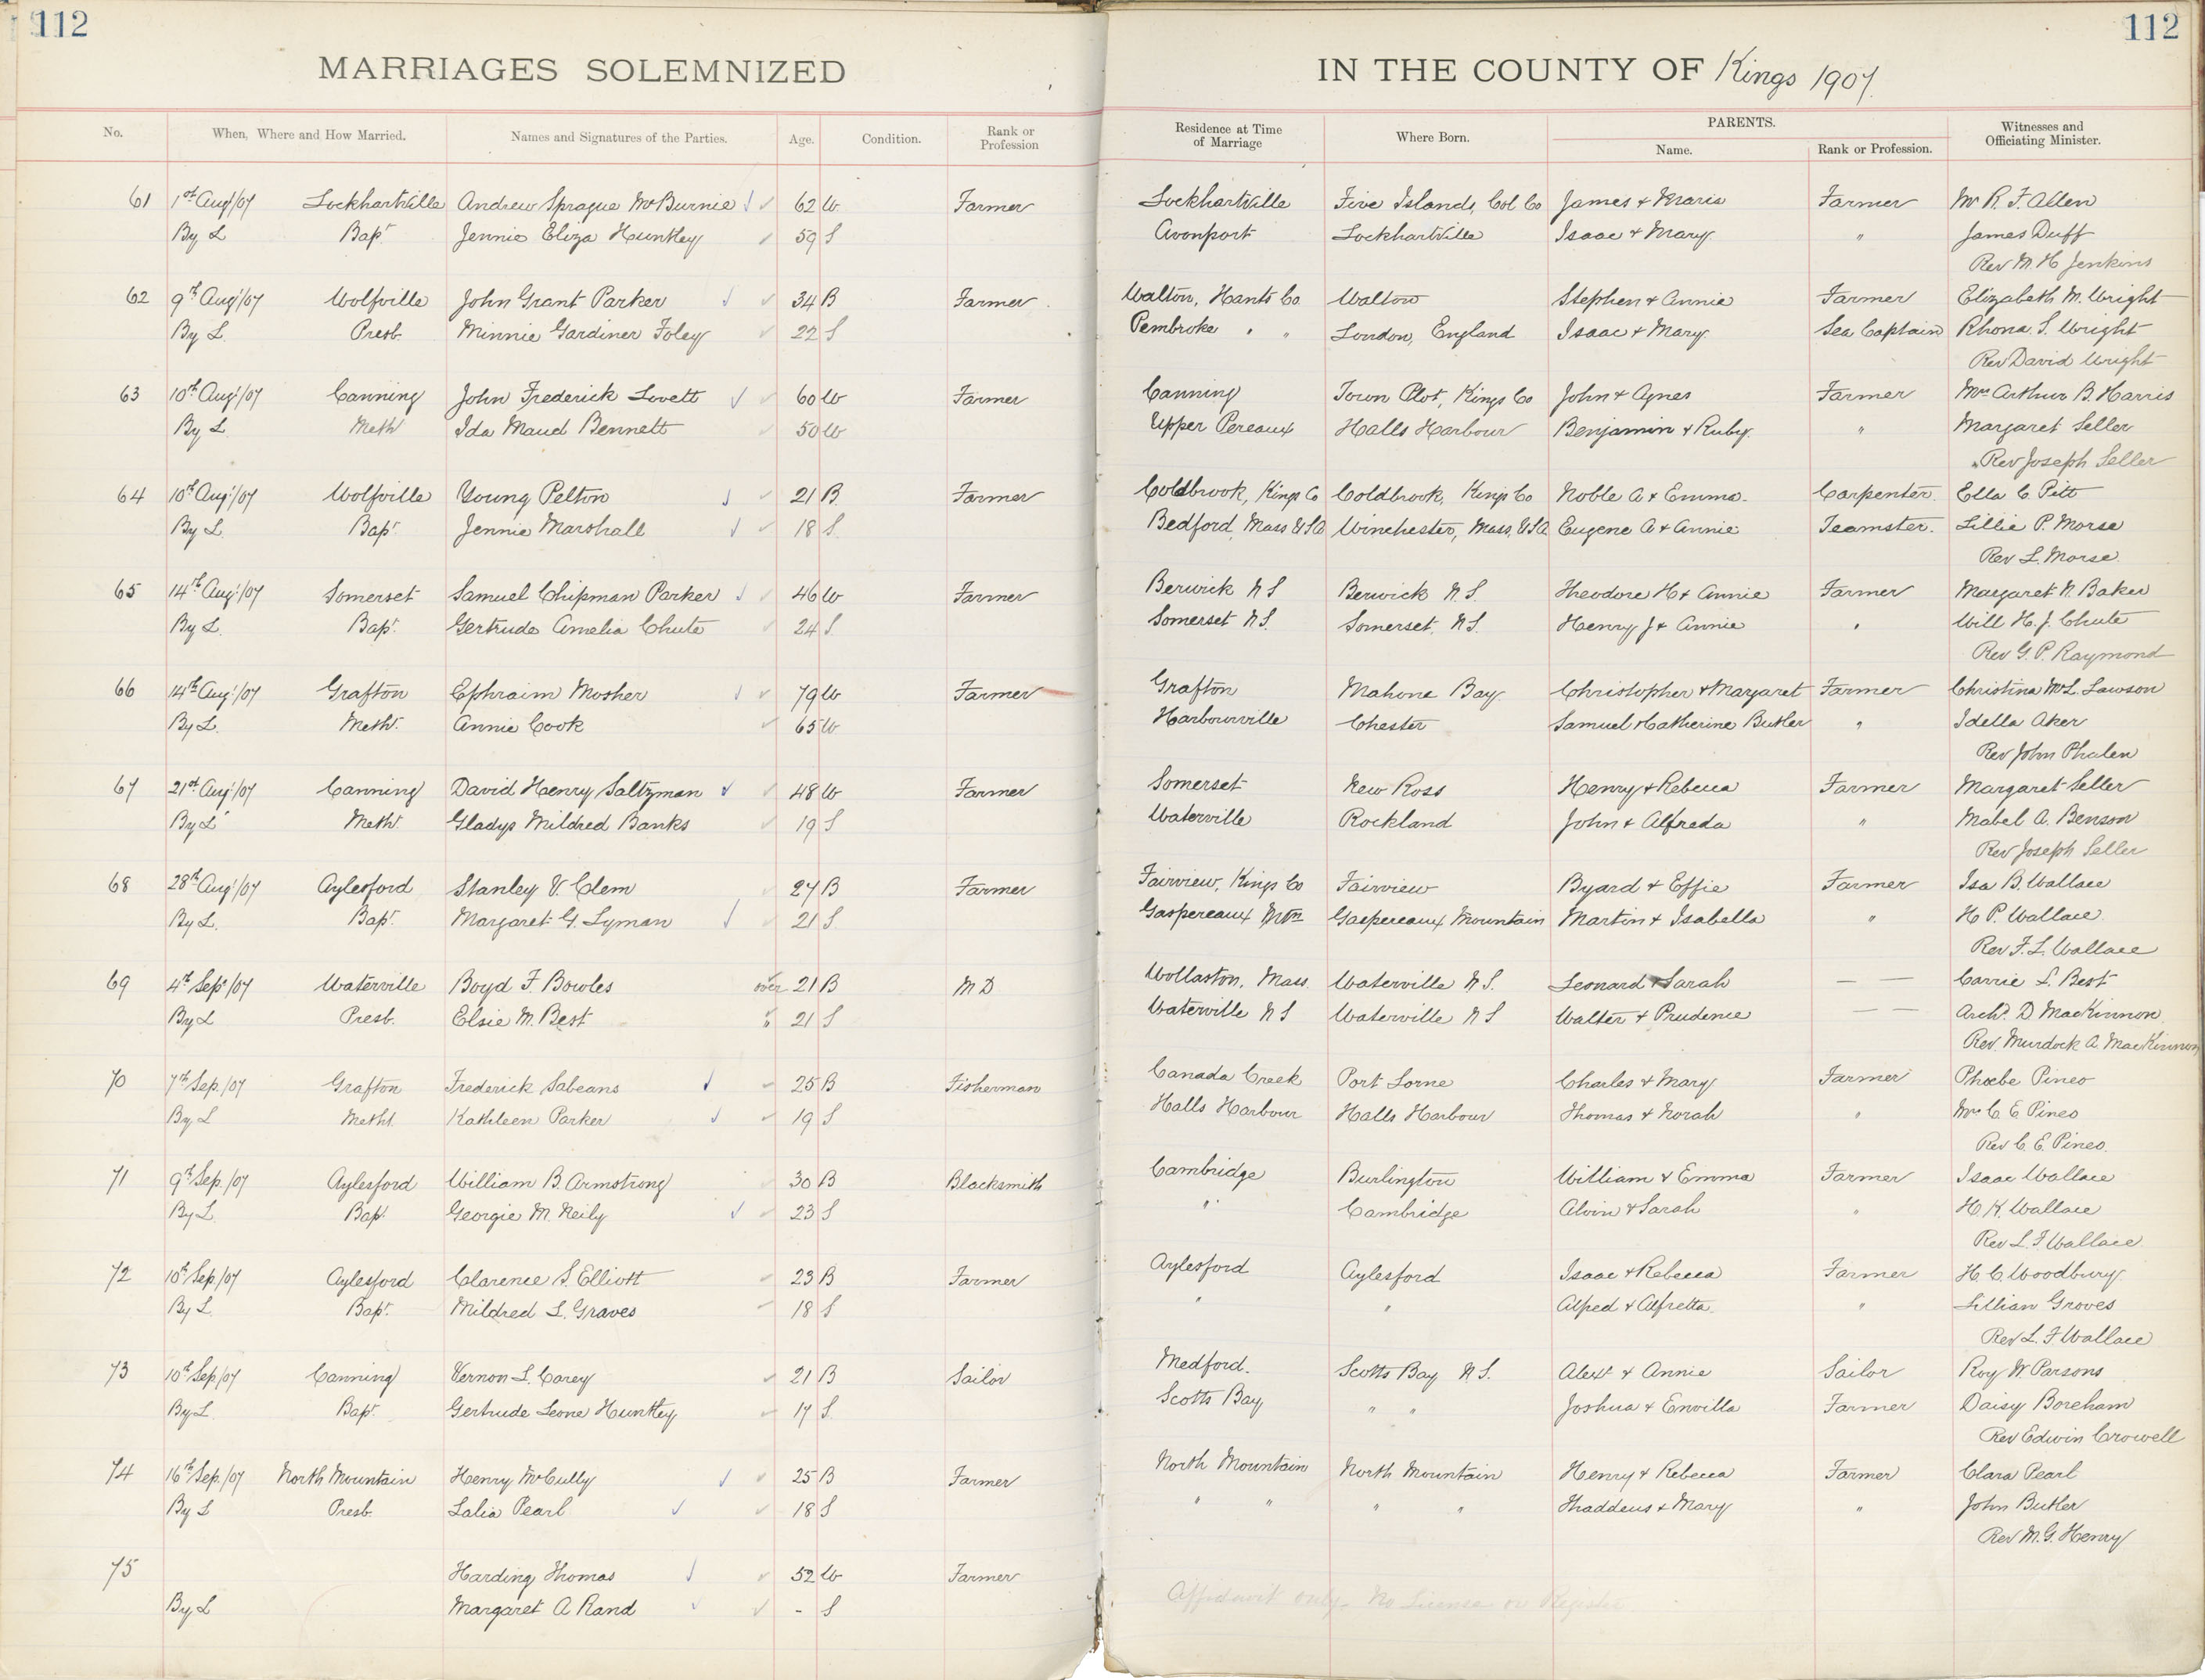 112
112
MARRIAGES SOLEMNIZED IN THE COUNTY OF Kings 1907.
No. When, Where and How Married. Names and Signatures of the Parties. Age. Condition. Rank or Profession Residence at Time of Marriage Where Born. PARENTS. Name. Rank or Profession. Witnesses and Officiating Minister.
61 1st Aug/07 Lockhartville Andrew Sprague McBurnie 62 W Farmer Lockhartville Five Islands, Col Co James & Maria Farmer Mr R. F. Allen
By L Bapt Jennie Eliza Huntley 59 S Avonport Lockhartville Isaac & Mary " James Duff
Rev M. H Jenkins
62 9th Aug/07 Wolfville John Grant Parker 34 B Farmer Walton, Hants Co Walton Stephen & Annie Farmer Elizabeth M. Wright
By L. Presb. Minnie Gardiner Foley 22 S Pembroke " " London, England Isaac & Mary Sea Captain Rhona S. Wright
Rev David Wright
63 10th Aug/07 Canning John Frederick Lovett 60 W Farmer Canning Town Plot, Kings Co John & Agnes Farmer Mrs Arthur B. Harris
By L. Meth Ida Maud Bennett 50 W Upper Pereaux Halls Harbour Benjamin & Ruby " Margaret Seller
Rev Joseph Seller
64 10th Aug/07 Wolfville Young Pelton 21 B. Farmer Coldbrook, Kings Co Coldbrook, Kings Co Noble A & Emma Carpenter Ella C Pitt
By L. Bapt Jennie Marshall 18 S. Bedford, Mass USA Winchester, Mass, USA Eugene A & Annie Teamster. Lillie P. Morse
Rev L. Morse
65 14th Aug/07 Somerset Samuel Chipman Parker 46 W Farmer Berwick N S Berwick N. S. Theodore H & Annie Farmer Margaret N. Baker
By L. Bapt. Gertrude Amelia Chute 24 S. Somerset N S. Somerset, N S. Henry J & Annie " Will H. J. Chute
Rev G. P. Raymond
66 14th Aug/07 Grafton Ephraim Mosher 79 W Farmer Grafton Mahone Bay Christopher & Margaret Farmer Christina McL. Lawson
By L. Meth. Annie Cook 65 W Harbourville Chester Samuel & Catherine Butler " Idella Aker
Rev John Phalen
67 21st Aug/07 Canning David Henry Saltzman 48 W Farmer Somerset New Ross Henry & Rebecca Farmer Margaret Seller
By L Meth. Gladys Mildred Banks 19 S Waterville Rockland John & Alfreda " Mabel A. Benson
Rev Joseph Seller
68 28th Aug/07 Aylesford Stanley V. Clem 27 B Farmer Fairview, Kings Co Fairview Byard & Effie Farmer Isa B. Wallace
By L. Bapt. Margaret G. Lyman 21 S. Gaspereaux Mtn Gaspereaux Mountain Martin & Isabella " H P. Wallace
Rev F. L. Wallace
69 4th Sept/07 Waterville Boyd F. Bowles over 21 B M D Wollaston, Mass. Waterville N S. Leonard & Sarah — — Carrie L. Best
By L Presb. Elsie M. Best " 21 S Waterville N S Waterville N S Walter & Prudence — — Archd. D MacKinnon
Rev. Murdock A. MacKinnon
70 7th Sep./07 Grafton Frederick Sabeans 25 B Fisherman Canada Creek Port Lorne Charles & Mary Farmer Phoebe Pineo
By L Metht. Kathleen Parker 19 S Halls Harbour Halls Harbour Thomas & Norah " Mrs C. E Pineo
Rev C. E. Pineo.
71 9th Sep./07 Aylesford William B. Armstrong 30 B Blacksmith Cambridge Burlington William & Emma Farmer Isaac Wallace
By L. Bapt. Georgie M. Neily 23 S " Cambridge Alvin & Sarah " H. K. Wallace
Rev L. F Wallace.
72 10th Sep./07 Aylesford Clarence S. Elliott 23 B Farmer Aylesford Aylesford Isaac & Rebecca Farmer H. C. Woodbury
By L. Bapt. Mildred L. Graves 18 S " " Alfred & Alfretta " Lillian Groves
Rev L. F Wallace
73 10th Sep./07 Canning Vernon L. Corey 21 B Sailor Medford. Scotts Bay N S. Alext & Annie Sailor Roy W. Parsons
By L. Bapt. Gertrude Leone Huntley 17 S. Scotts Bay " " Joshua & Envilla Farmer Daisy Boreham
Rev Edwin Crowell
74 16th Sep./07 North Mountain Henry McCully 25 B Farmer North Mountain North Mountain Henry & Rebecca Farmer Clara Pearl
By L Presb. Lalia Pearl 18 S " " " " Thaddeus & Mary " John Butler
Rev M. G. Henry
75 Harding Thomas 52 W Farmer
By L Margaret A Rand - S Affidavit only. No License or Register